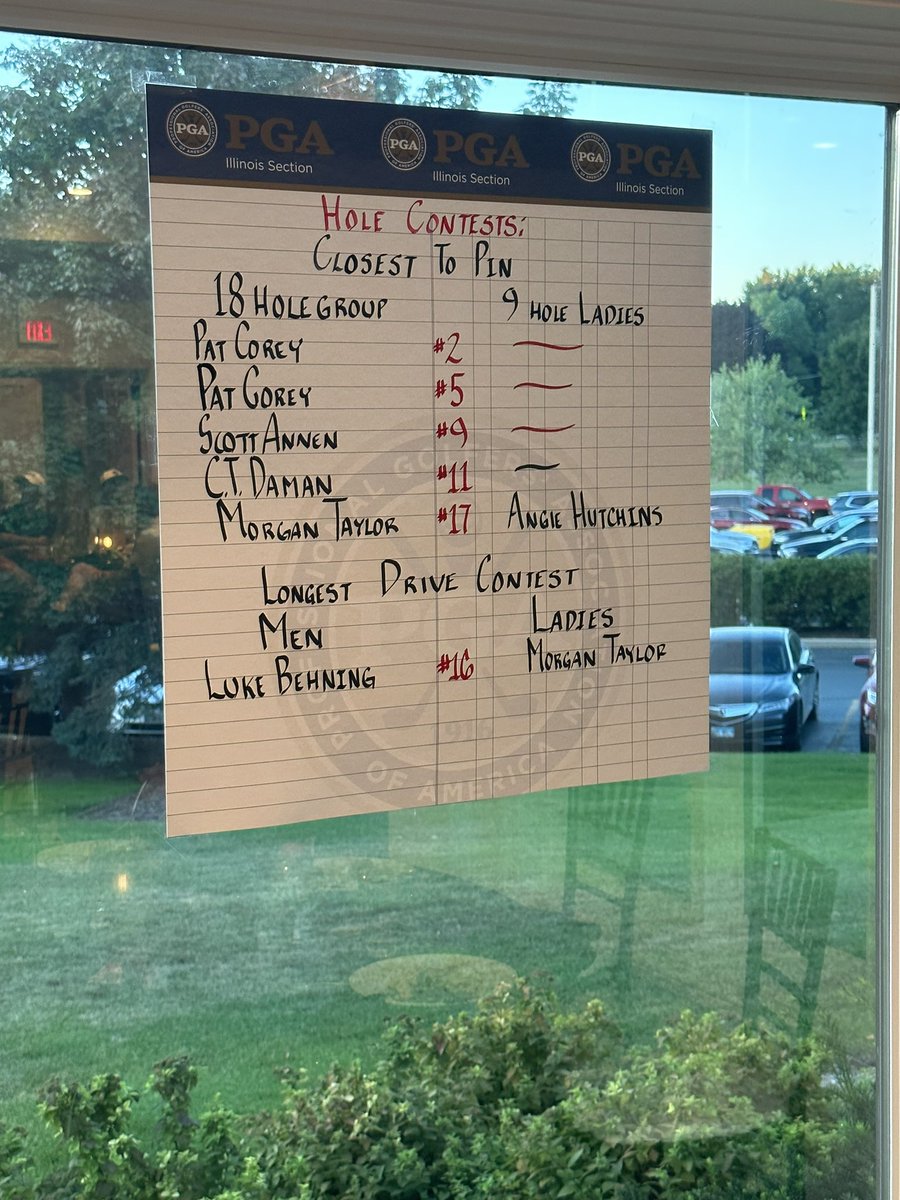 PGA PGA PGA
Illinois Section Illinois Section Illinois Section
HOLE CONTESTS:
CLOSEST TO PIN
18 HOLE GROUP 9 HOLE LADIES
PAT COREY #2 —
PAT COREY #5 —
SCOTT ANNEN #9 —
C.T. DAMAN #11 —
MORGAN TAYLOR #17 ANGIE HUTCHINS
LONGEST DRIVE CONTEST
MEN LADIES
LUKE BEHNING #16 MORGAN TAYLOR
OF AMERICA